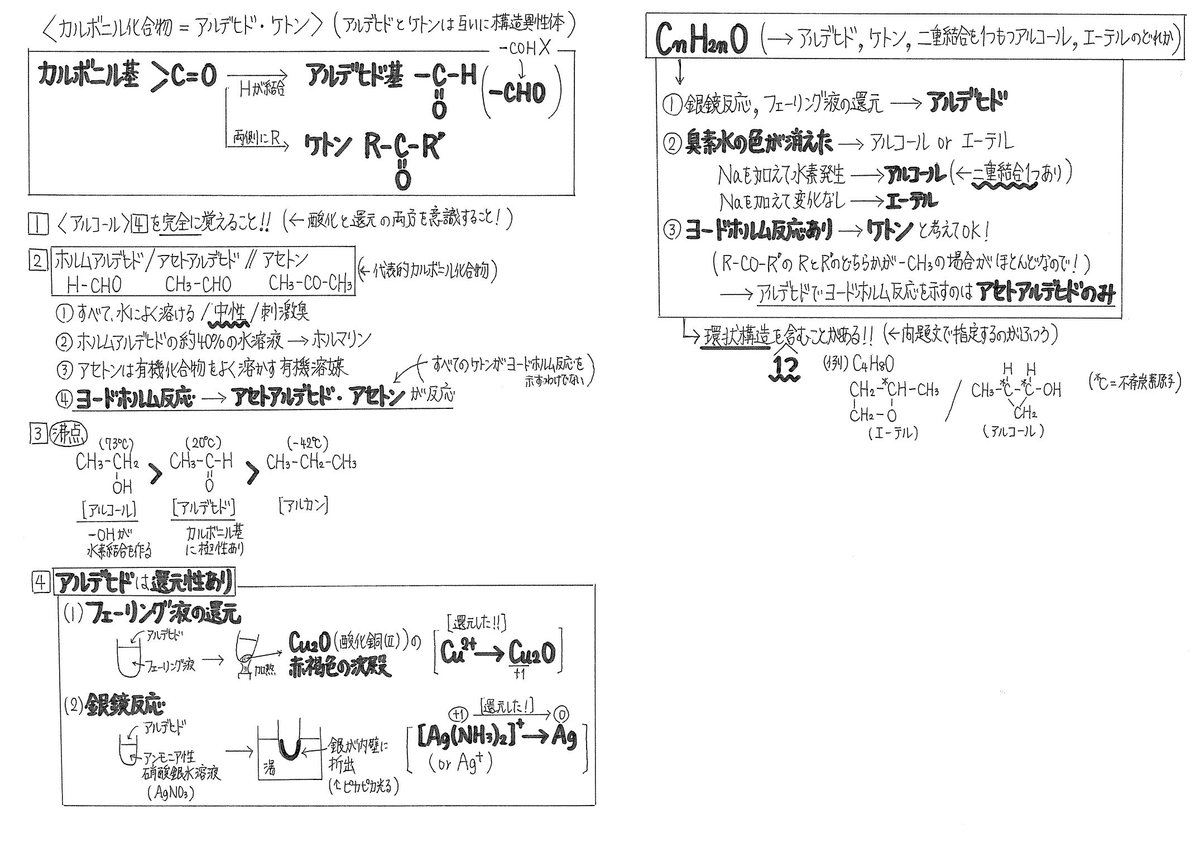 〈カルボニル化合物 = アルデヒド・ケトン〉(アルデヒドとケトンは互いに構造異性体)
カルボニル基 >C=O → Hが結合 アルデヒド基 -C-H (-CHO)
O
-COH X
両側にR → ケトン R-C-R'
O
1 〈アルコール〉4を完全に覚えること!! (←酸化と還元の両方を意識すること!)
2 ホルムアルデヒド/アセトアルデヒド//アセトン (←代表的カルボニル化合物)
H-CHO CH3-CHO CH3-CO-CH3
①すべて、水によく溶ける/中性/刺激臭
②ホルムアルデヒドの約40%の水溶液→ホルマリン
③アセトンは有機化合物をよく溶かす有機溶媒
④ヨードホルム反応→アセトアルデヒド・アセトンが反応
(すべてのケトンがヨードホルム反応を
示すわけでない)
3 沸点
(73℃) (20℃) (-42℃)
CH3-CH2 > CH3-C-H > CH3-CH2-CH3
OH O
[アルコール] [アルデヒド] [アルカン]
-OHが カルボニル基
水素結合を作る に極性あり
4 アルデヒドは還元性あり
(1)フェーリング液の還元
アルデヒド
フェーリング液
→ 加熱
Cu2O(酸化銅(Ⅱ))の
赤褐色の沈殿
[還元した!!]
[Cu2+→Cu2O]
+1
(2)銀鏡反応
アルデヒド
アンモニア性
硝酸銀水溶液
(AgNO3)
→ 湯
銀が内壁に
析出
(↑ピカピカ光る)
+1 [還元した!] 0
[[Ag(NH3)2]+→Ag]
(or Ag+)
CnH2nO (→アルデヒド,ケトン,二重結合を1つもつアルコール,エーテルのどれか)
①銀鏡反応,フェーリング液の還元→アルデヒド
②臭素水の色が消えた→アルコール or エーテル
Naを加えて水素発生→アルコール(←二重結合1つあり)
Naを加えて変化なし→エーテル
③ヨードホルム反応あり→ケトンと考えてOK!
(R-CO-R'のRとR'のどちらかが-CH3の場合がほとんどなので!)
→アルデヒドでヨードホルム反応を示すのはアセトアルデヒドのみ
→環状構造を含むことがある!! (←問題文で指定するのがふつう)
1つ
(例) C4H8O
CH2-*CH-CH3
CH2-O
(エーテル)
/
H H
CH3-*C-*C-OH
CH2
(アルコール)
(*C=不斉炭素原子)